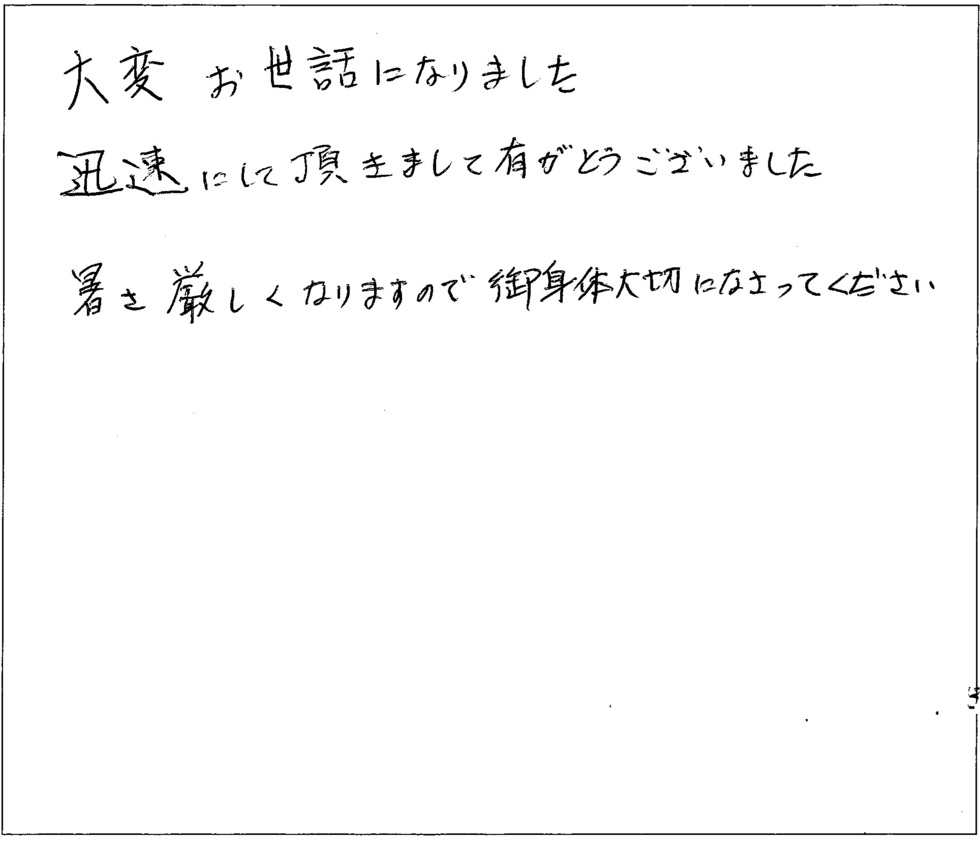 大変お世話になりました
迅速にして頂きまして有がとうございました
暑さ厳しくなりますので御身体大切になさってください